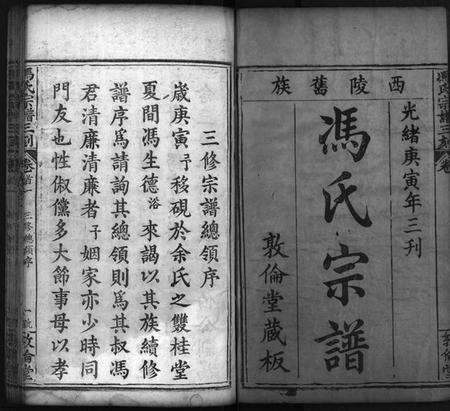 馮氏宗譜三刻
卷
西陵舊族
光緒庚寅年三刊
馮氏宗譜
敦倫堂藏板
敦倫堂
三修宗譜總領序
歲庚寅予移硯於余氏之雙桂堂
夏間馮生德浴來謁以其族續修
譜序為請詢其總領則為其叔馮
君清廉清廉者予姻家亦少時同
門友也性俶儻多大節事母以孝
馮氏宗譜三刻
卷首
三修總領序
一
敦倫堂